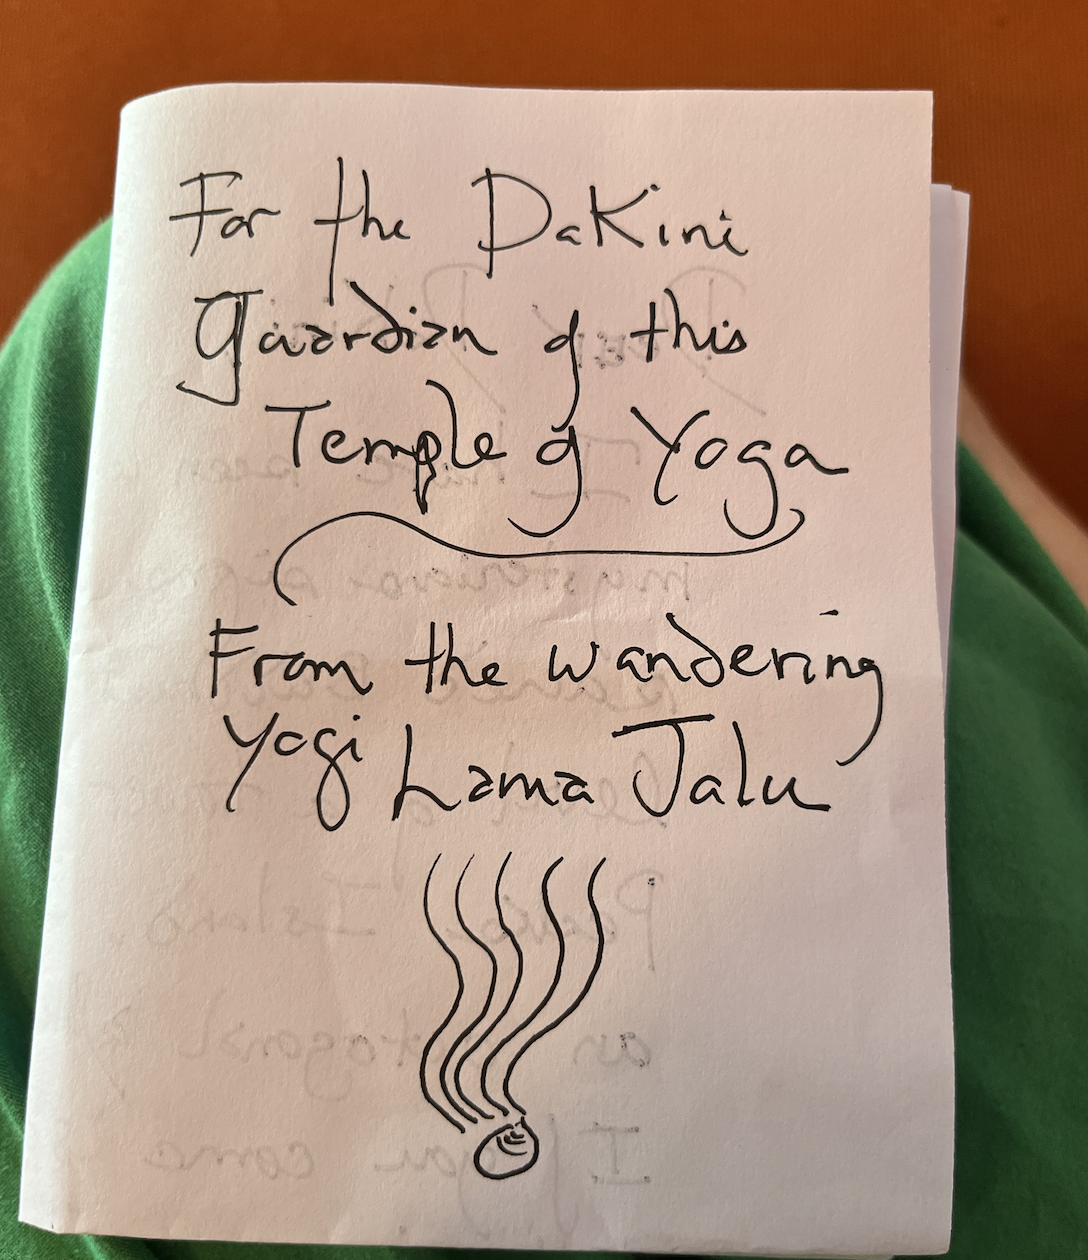 For the DaKini
Guardian of this
Temple of Yoga
From the wandering
Yogi Lama Jalu